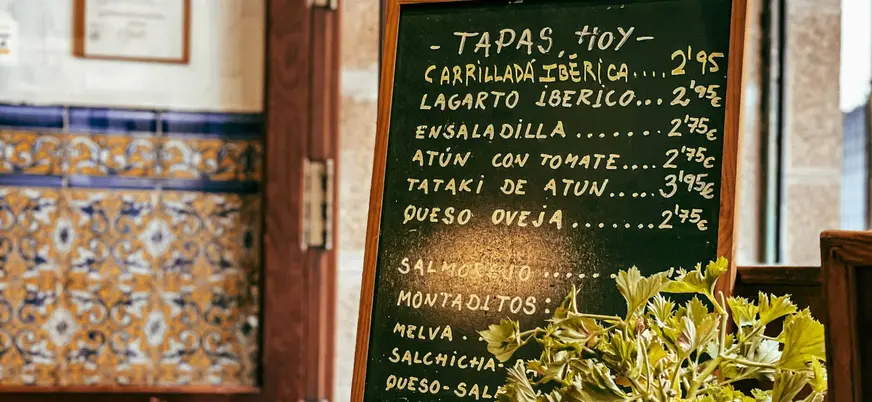 - TAPAS, HOY -
CARRILLADA IBÉRICA.... 2'95
LAGARTO IBERICO... 2'95€
ENSALADILLA ....... 2'75€
ATÚN CON TOMATE.... 2'75€
TATAKI DE ATUN..... 3'95€
QUESO OVEJA ....... 2'75€
SALMOREJO ......
MONTADITOS:
MELVA..
SALCHICHA-
QUESO-